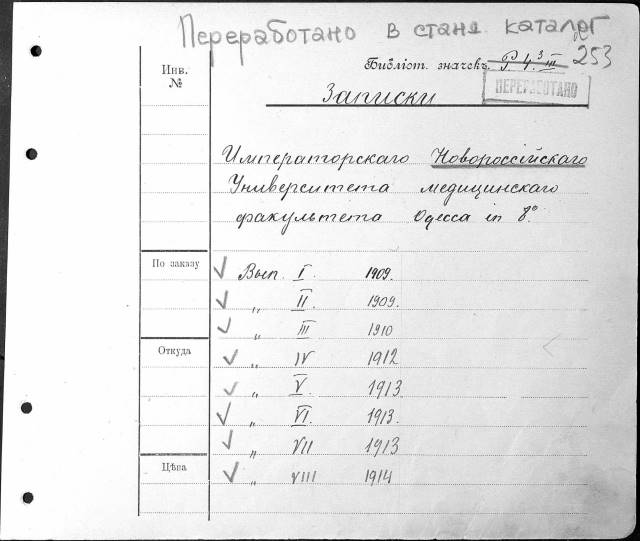 Переработано в станд. каталог
Инв. №
Библіот. значекъ Р. 4. 3 III 253
ПЕРЕРАБОТАНО
Записки
Императорскаго Новороссійскаго
Университета медицинскаго
факультета Одесса in 8º
По заказу
Вып. I. 1909.
„ II 1909.
„ III 1910
Откуда
„ IV 1912
„ V 1913.
„ VI. 1913.
„ VII 1913
Цѣна
„ VIII 1914